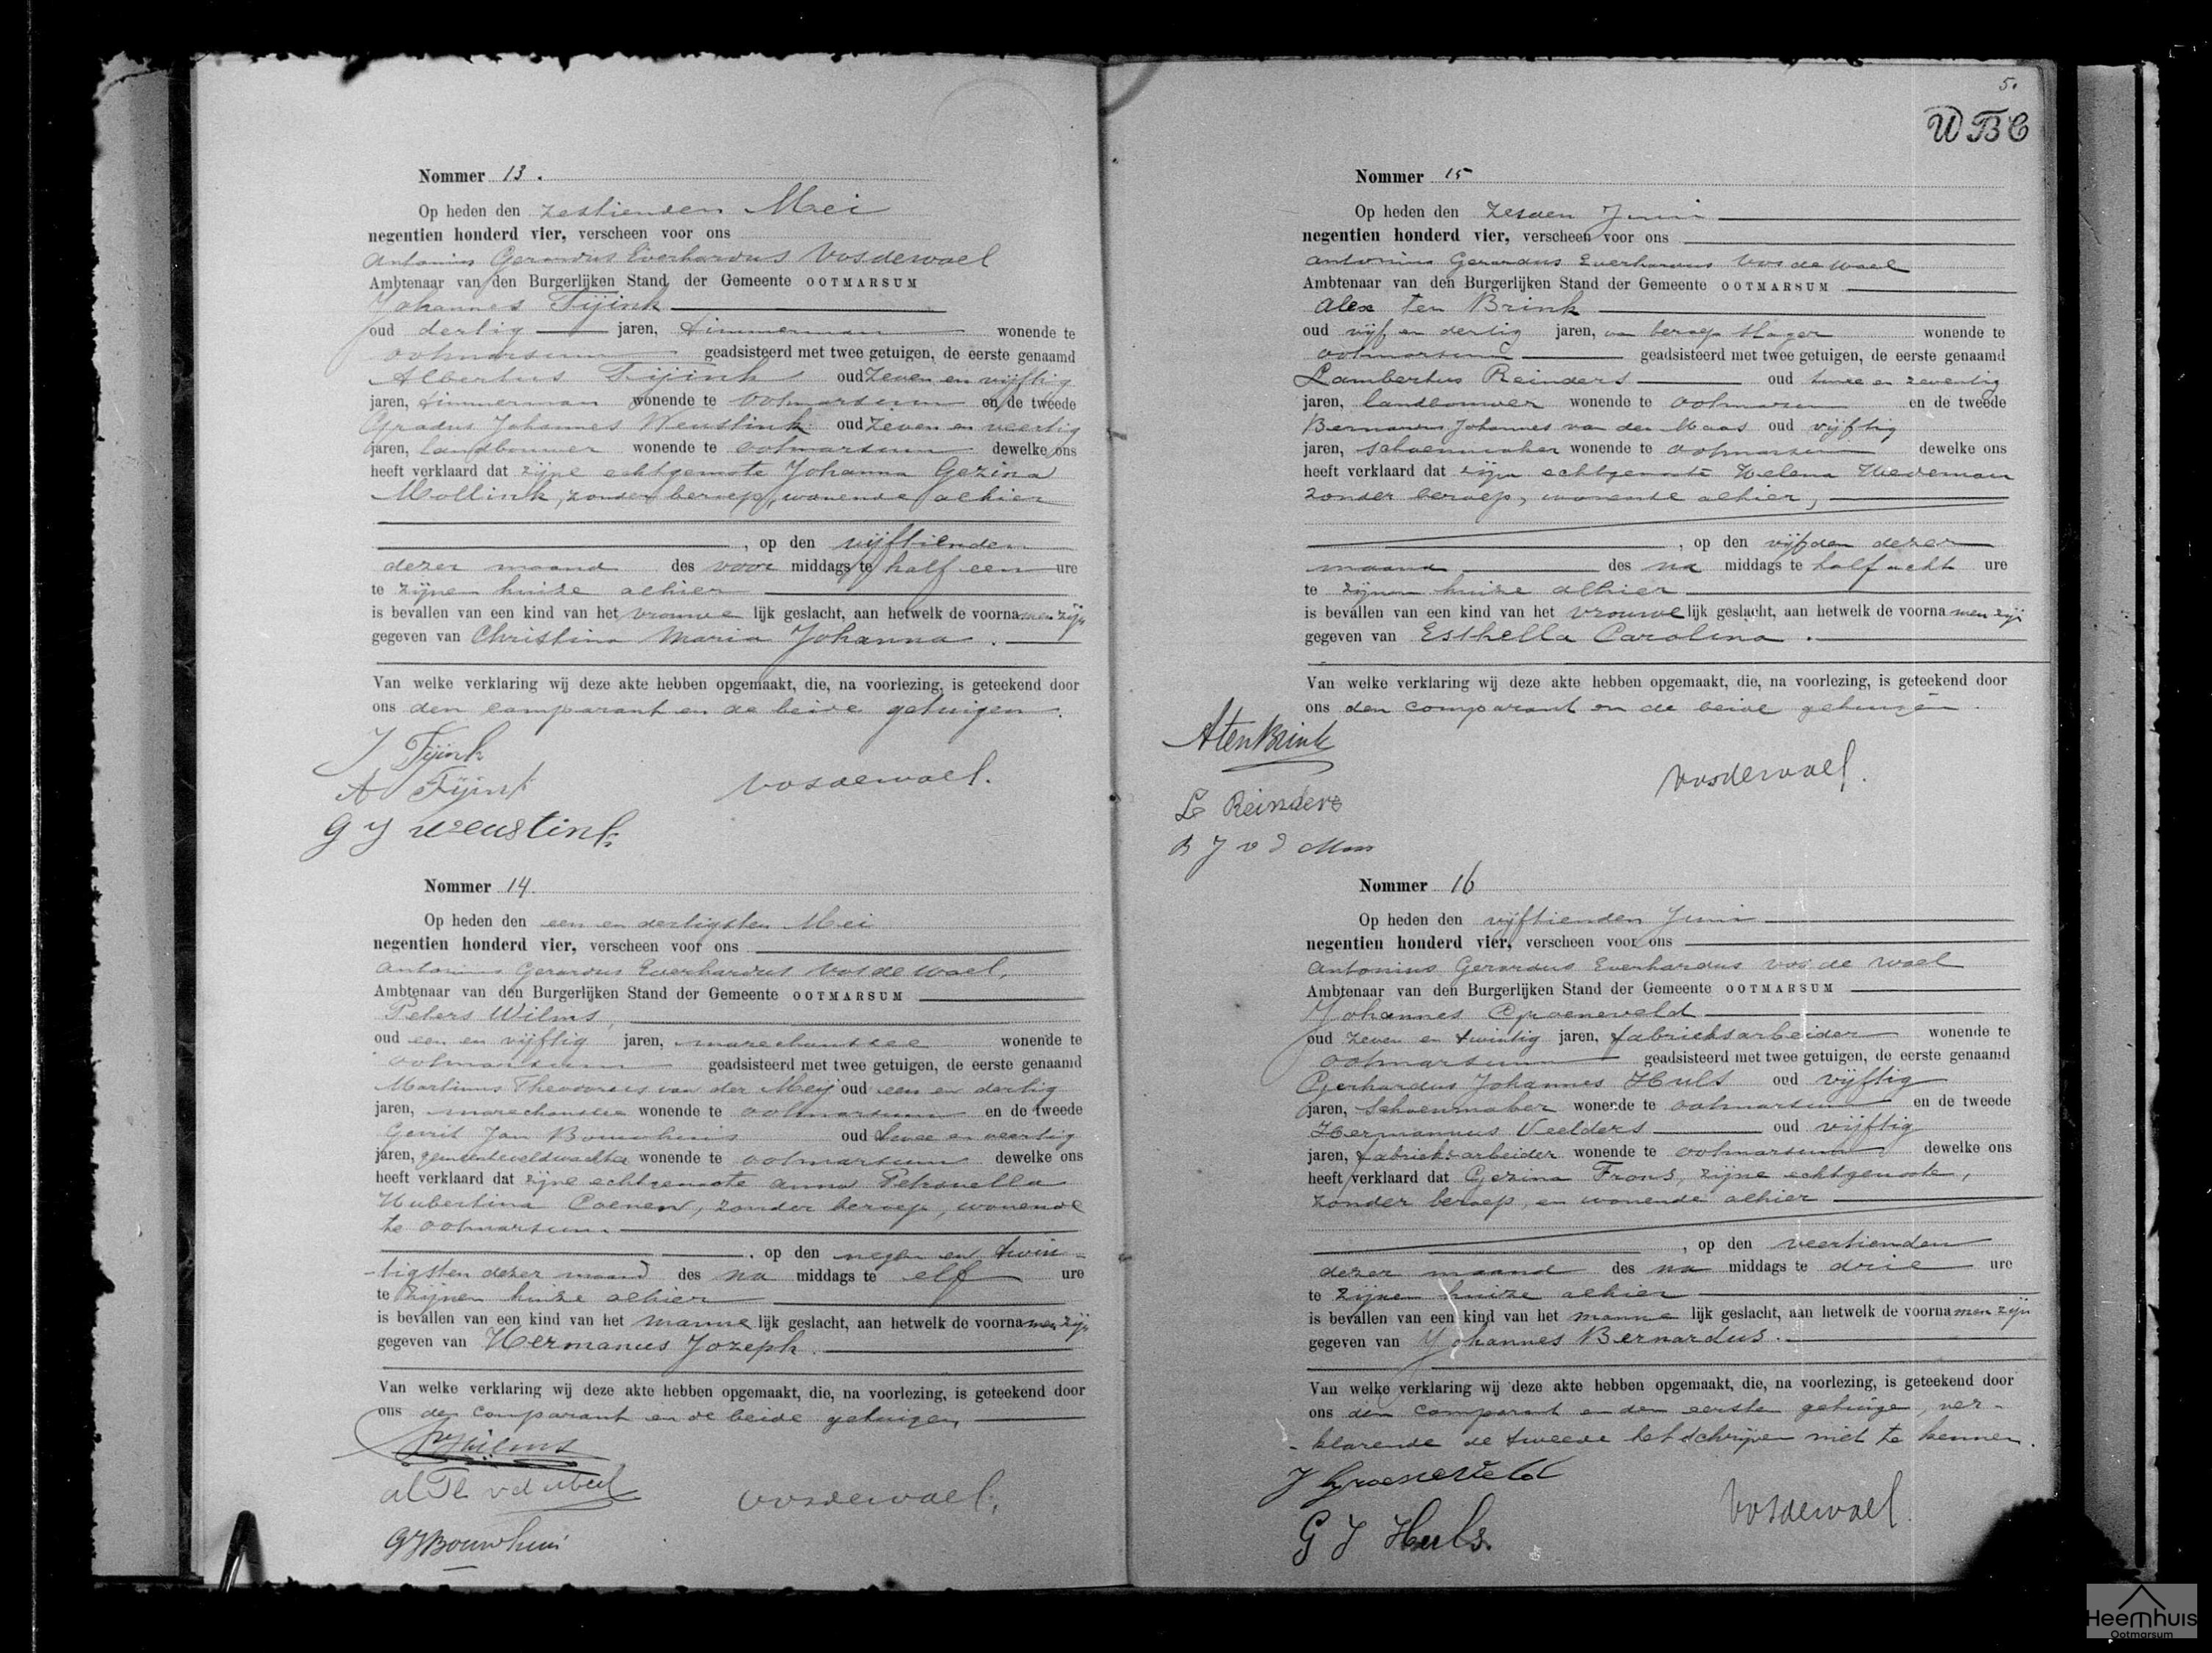 Nommer 13.
Op heden den zestienden Mei
negentien honderd vier, verscheen voor ons
Antonius Gerardus Everhardus Vosdewael
Ambtenaar van den Burgerlijken Stand der Gemeente OOTMARSUM
Johannes Fijink
oud dertig jaren, timmerman wonende te
Ootmarsum geadsisteerd met twee getuigen, de eerste genaamd
Albertus Fijink oud zeven en vijftig
jaren, timmerman wonende te Ootmarsum en de tweede
Gradus Johannes Weustink oud zeven en veertig
jaren, landbouwer wonende te Ootmarsum dewelke ons
heeft verklaard dat zijne echtgenoote Johanna Gezina
Mollink, zonder beroep, wonende alhier
, op den vijftienden
dezer maand des voor middags te half een ure
te zijnen huize alhier
is bevallen van een kind van het vrouwe lijk geslacht, aan hetwelk de voornamen zijn
gegeven van Christina Maria Johanna.
Van welke verklaring wij deze akte hebben opgemaakt, die, na voorlezing, is geteekend door
ons den comparant en de beide getuigen.
J Fijink
A Fijink
Vosdewael.
G J Weustink
Nommer 14.
Op heden den een en dertigsten Mei
negentien honderd vier, verscheen voor ons
Antonius Gerardus Everhardus Vos de Wael,
Ambtenaar van den Burgerlijken Stand der Gemeente OOTMARSUM
Peters Wilms,
oud een en vijftig jaren, marechaussee wonende te
Ootmarsum geadsisteerd met twee getuigen, de eerste genaamd
Martinus Theodorus van der Meij oud een en dertig
jaren, marechaussee wonende te Ootmarsum en de tweede
Gerrit Jan Bouwhuis oud twee en veertig
jaren, gemeenteveldwachter wonende te Ootmarsum dewelke ons
heeft verklaard dat zijne echtgenoote Anna Petronella
Hubertina Coenen, zonder beroep, wonende
te Ootmarsum.
, op den negen en twin-
-tigsten dezer maand des na middags te elf ure
te zijnen huize alhier
is bevallen van een kind van het manne lijk geslacht, aan hetwelk de voornamen zijn
gegeven van Hermanus Jozeph.
Van welke verklaring wij deze akte hebben opgemaakt, die, na voorlezing, is geteekend door
ons den comparant en de beide getuigen,
P Wilms
Vosdewael.
GJ Bouwhuis
5.
WBC
Nommer 15
Op heden den zesden Juni
negentien honderd vier, verscheen voor ons
Antonius Gerardus Everhardus Vos de Wael
Ambtenaar van den Burgerlijken Stand der Gemeente OOTMARSUM
Alex ten Brink
oud vijf en dertig jaren, van beroep slager wonende te
Ootmarsum geadsisteerd met twee getuigen, de eerste genaamd
Lambertus Reinders oud twee en zeventig
jaren, landbouwer wonende te Ootmarsum en de tweede
Bernardus Johannes van der Maas oud vijftig
jaren, schoenmaker wonende te Ootmarsum dewelke ons
heeft verklaard dat zijn echtgenoote Helena
zonder beroep, wonende alhier,
, op den vijfden dezer
maand des na middags te half acht ure
te zijnen huize alhier
is bevallen van een kind van het vrouwe lijk geslacht, aan hetwelk de voornamen zijn
gegeven van Esthella Carolina.
Van welke verklaring wij deze akte hebben opgemaakt, die, na voorlezing, is geteekend door
ons den comparant en de beide getuigen.
A ten Brink
Vosdewael.
L Reinders
B J v d Maas
Nommer 16
Op heden den vijftienden Juni
negentien honderd vier, verscheen voor ons
Antonius Gerardus Everhardus Vos de Wael
Ambtenaar van den Burgerlijken Stand der Gemeente OOTMARSUM
Johannes Groeneveld
oud zeven en twintig jaren, fabrieksarbeider wonende te
Ootmarsum geadsisteerd met twee getuigen, de eerste genaamd
Gerhardus Johannes Huls oud vijftig
jaren, schoenmaker wonende te Ootmarsum en de tweede
Hermannus Veelders oud vijftig
jaren, fabrieksarbeider wonende te Ootmarsum dewelke ons
heeft verklaard dat Gezina Frons, zijne echtgenoote,
zonder beroep, en wonende alhier
, op den veertienden
dezer maand des na middags te drie ure
te zijnen huize alhier
is bevallen van een kind van het manne lijk geslacht, aan hetwelk de voornamen zijn
gegeven van Johannes Bernardus.
Van welke verklaring wij deze akte hebben opgemaakt, die, na voorlezing, is geteekend door
ons den comparant en den eersten getuige, ver-
-klarende de tweede het schrijven niet te kennen.
J Groeneveld
Vosdewael.
G J Huls.
Heemhuis
Ootmarsum